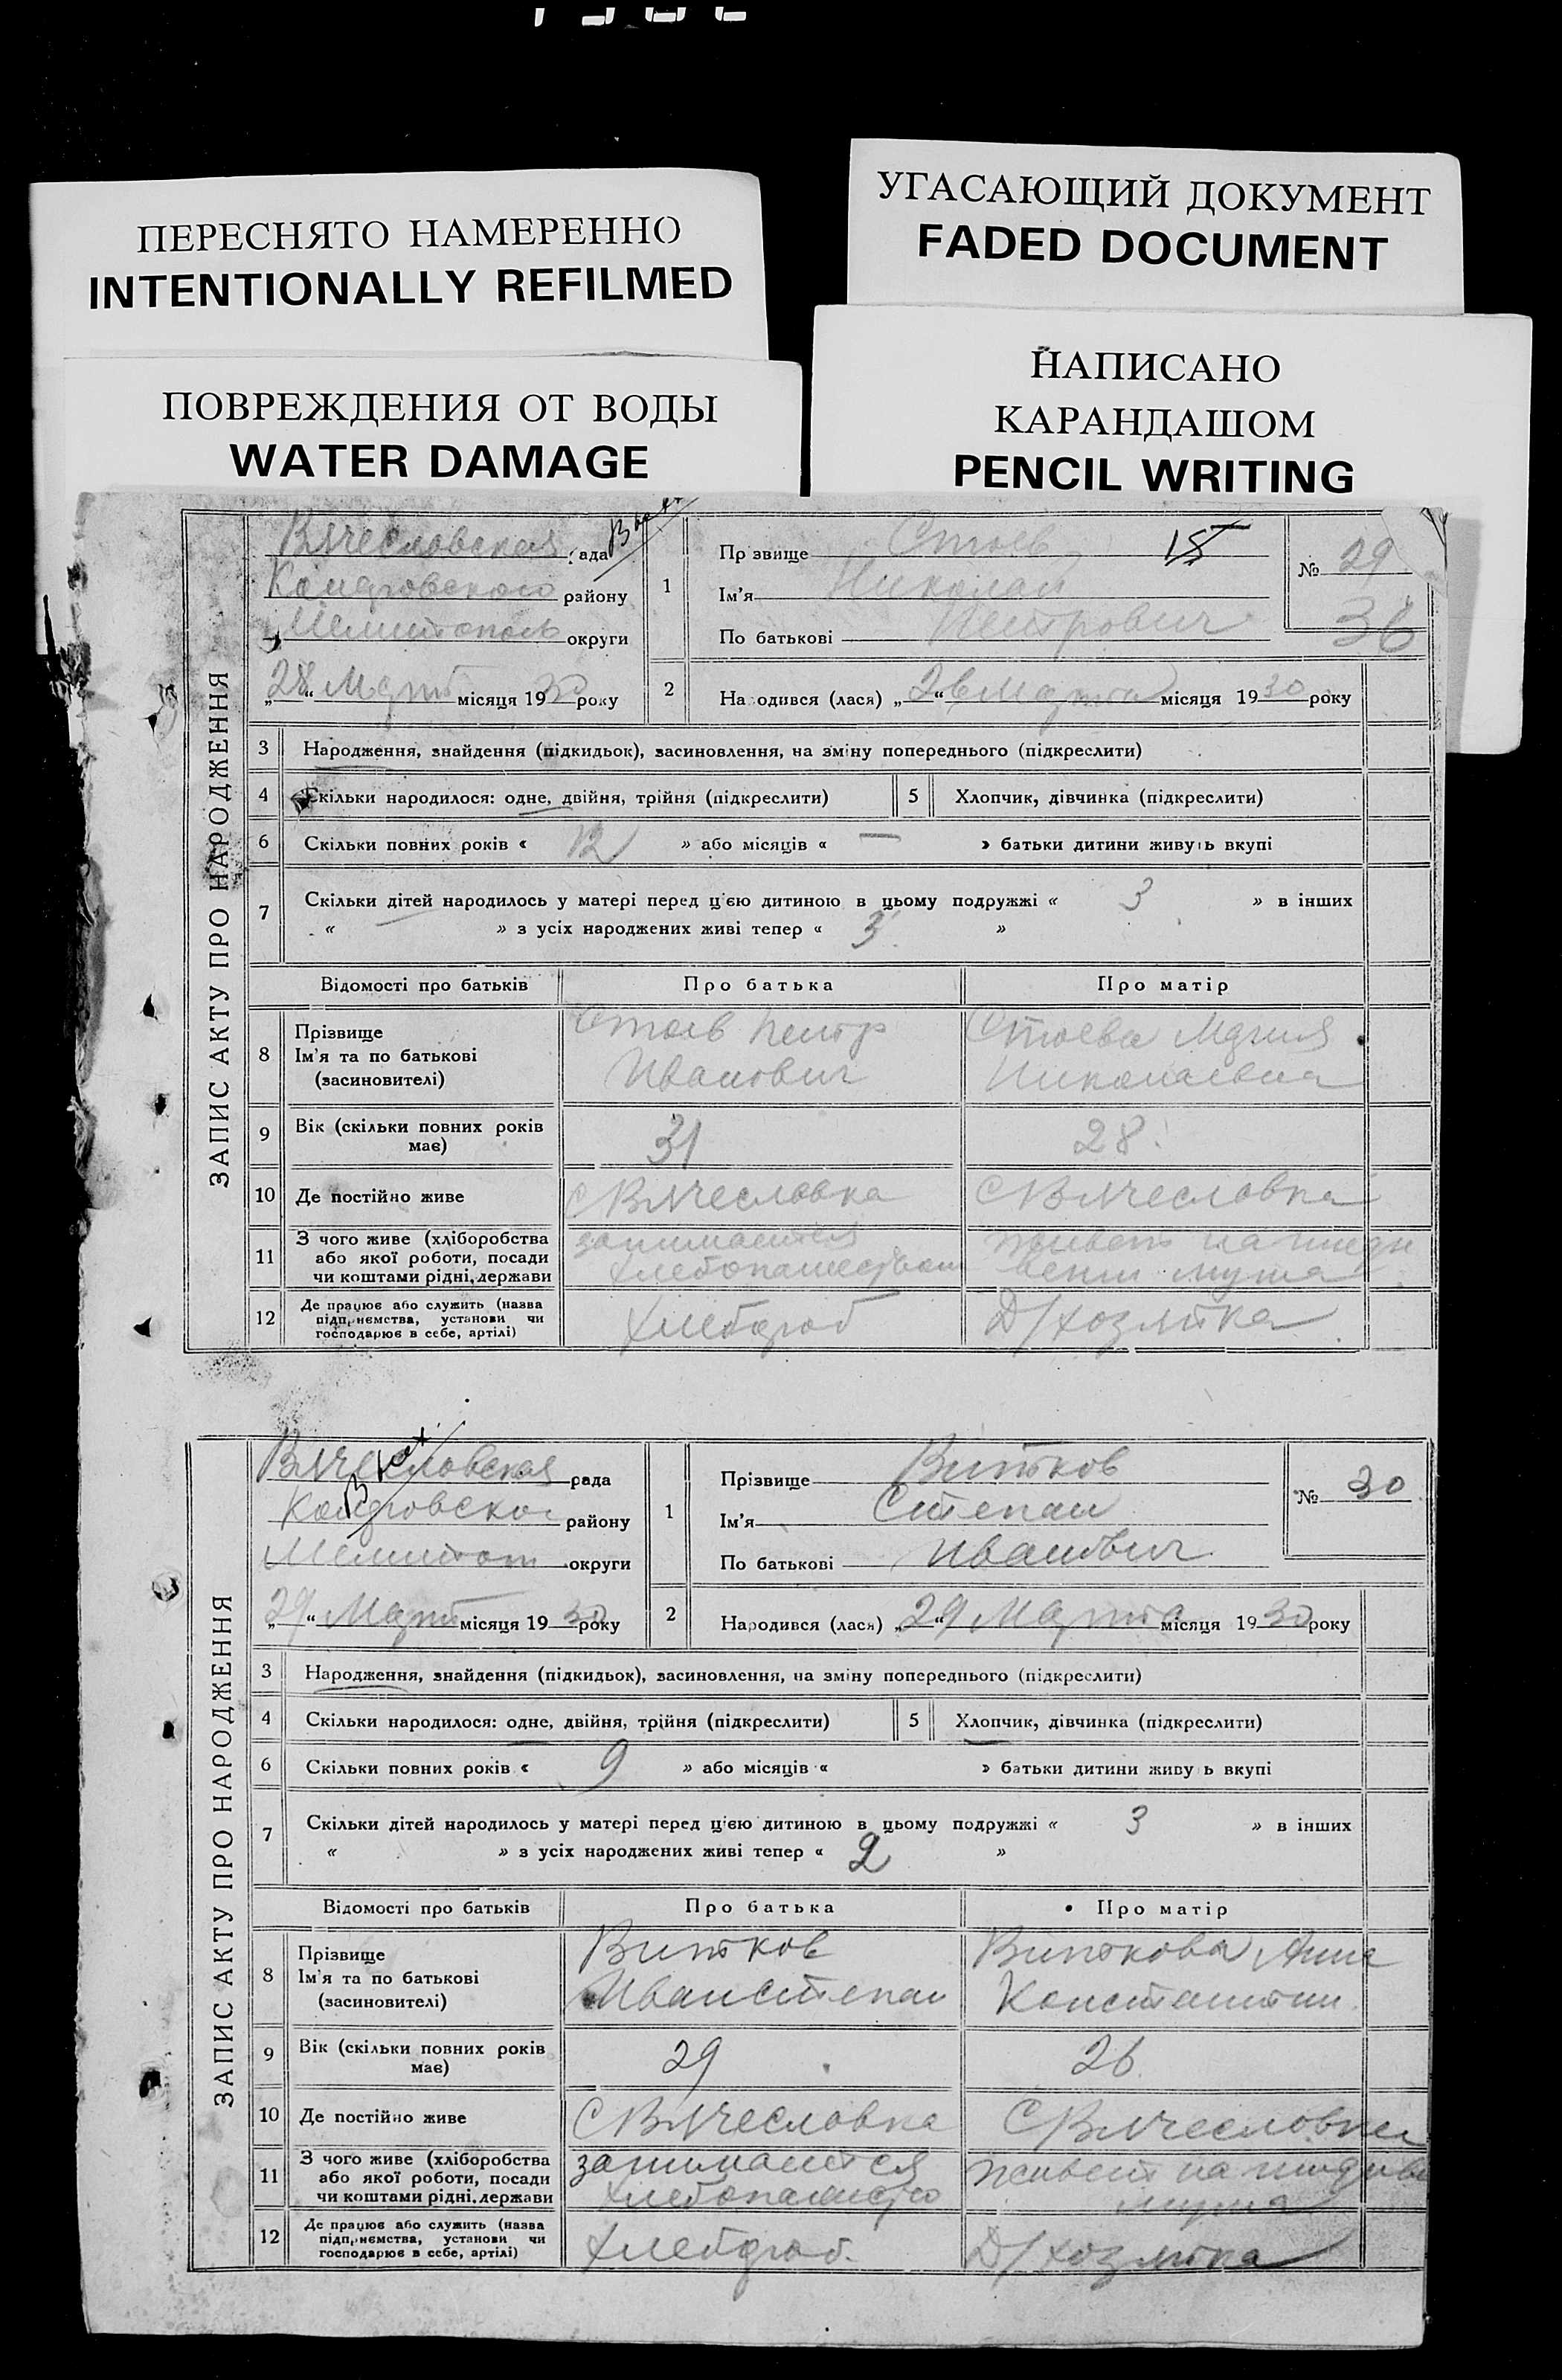 ПЕРЕСНЯТО НАМЕРЕННО
INTENTIONALLY REFILMED
УГАСАЮЩИЙ ДОКУМЕНТ
FADED DOCUMENT
ПОВРЕЖДЕНИЯ ОТ ВОДЫ
WATER DAMAGE
НАПИСАНО
КАРАНДАШОМ
PENCIL WRITING
ЗАПИС АКТУ ПРО НАРОДЖЕННЯ
Вячесловская рада
району
Мелитополь округи
„28“ Март місяця 1930 року
1 Прізвище Стоев 15
Ім'я Николай
По батькові Петрович
№ 29
36
2 Народився (лася) „26“ Марта місяця 1930 року
3 Народження, знайдення (підкидьок), засиновлення, на зміну попереднього (підкреслити)
4 Скільки народилося: одне, двійня, трійня (підкреслити) 5 Хлопчик, дівчинка (підкреслити)
6 Скільки повних років « 12 » або місяців « — » батьки дитини живуть вкупі
7 Скільки дітей народилось у матері перед цією дитиною в цьому подружжі « 3 » в інших
« — » з усіх народжених живі тепер « 3 »
Відомості про батьків Про батька Про матір
8 Прізвище
Ім'я та по батькові
(засиновителі)
Стоев Петр
Иванович
Стоева Мария
Николаевна
9 Вік (скільки повних років
має)
31
28
10 Де постійно живе С Вячесловка С Вячесловка
11 З чого живе (хліборобства
або якої роботи, посади
чи коштами рідні, держави
занимается
хлебопашеством
живет на ижди
вении мужа
12 Де працює або служить (назва
підприємства, установи чи
господарює в себе, артілі)
Хлебороб
Д/хозяйка
ЗАПИС АКТУ ПРО НАРОДЖЕННЯ
Вячесловская рада
району
Мелитоп округи
„29“ Март місяця 1930 року
1 Прізвище Витков
Ім'я Степан
По батькові Иванович
№ 30
2 Народився (лася) „29“ Марта місяця 1930 року
3 Народження, знайдення (підкидьок), засиновлення, на зміну попереднього (підкреслити)
4 Скільки народилося: одне, двійня, трійня (підкреслити) 5 Хлопчик, дівчинка (підкреслити)
6 Скільки повних років « 9 » або місяців « » батьки дитини живуть вкупі
7 Скільки дітей народилось у матері перед цією дитиною в цьому подружжі « 3 » в інших
« » з усіх народжених живі тепер « 2 »
Відомості про батьків Про батька Про матір
8 Прізвище
Ім'я та по батькові
(засиновителі)
Витков
Иван Степан
Виткова Анна
Константин
9 Вік (скільки повних років
має)
29
26
10 Де постійно живе С Вячесловка С Вячесловка
11 З чого живе (хліборобства
або якої роботи, посади
чи коштами рідні, держави
занимается
живет на
мужа
12 Де працює або служить (назва
підприємства, установи чи
господарює в себе, артілі)
Хлебороб.
Д/хозяйка